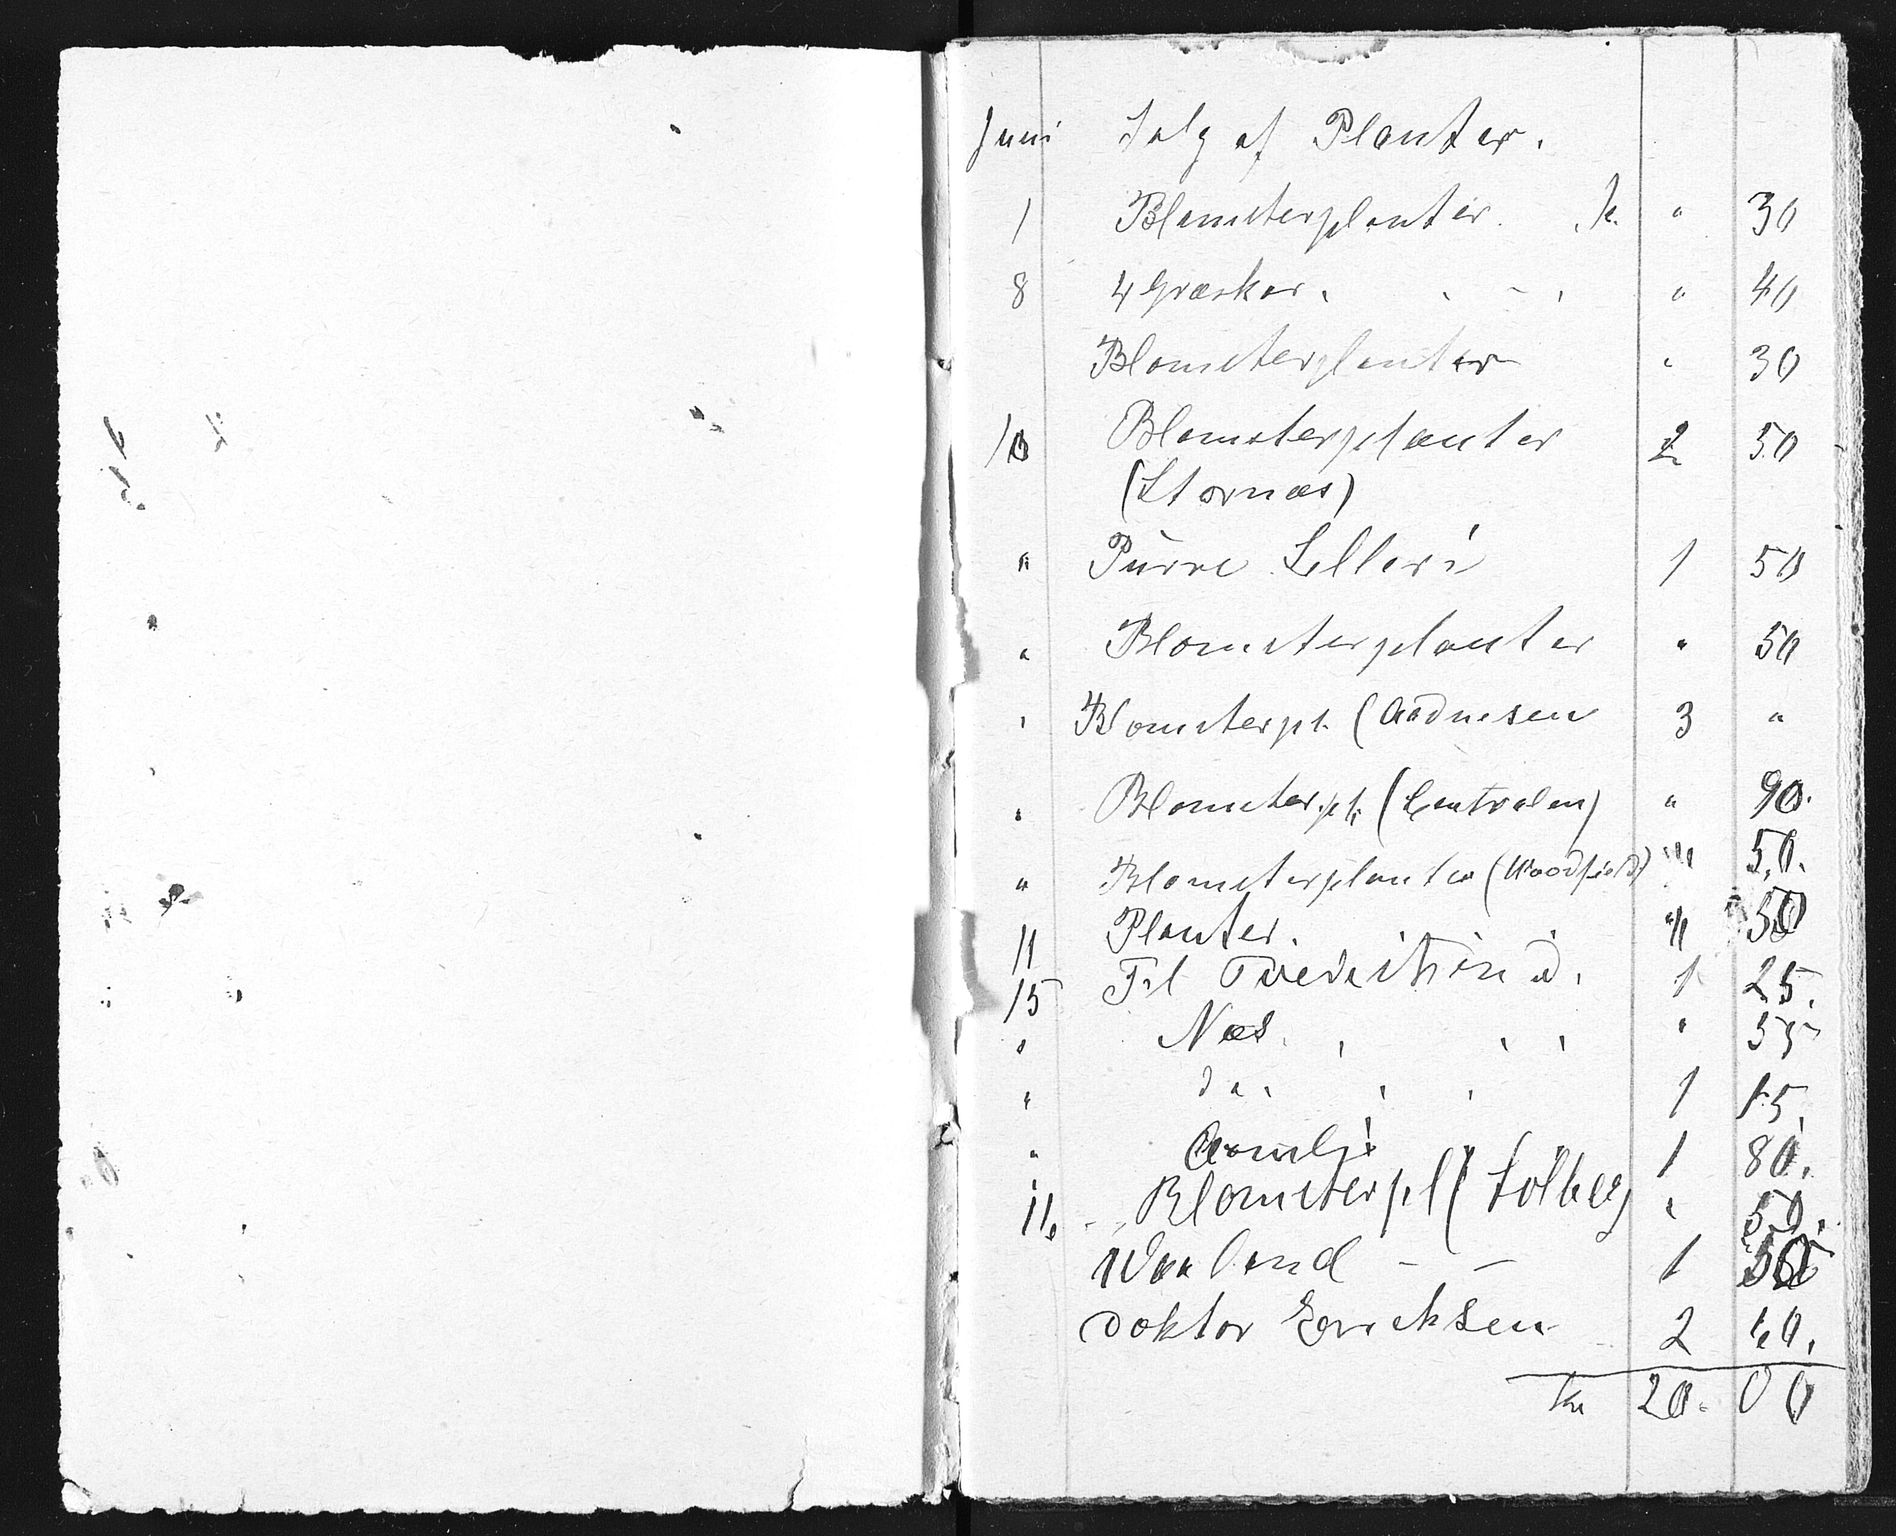 Juni Salg af Planter.
1 Blomsterplanter. k. " 30
8 4 Græskar. " 40
Blomsterplanter " 30
10 Blomsterplanter 2 50
(Stornæs)
" Purre Selleri 1 50
" Blomsterplanter " 50
" Blomsterpl. (Aadnesen 3 "
" Blomsterpl. (Centralen) " 90.
" Blomsterplanter (Woodfield) " 50.
11 Planter. " 50
15 Frl Tvedestrand. 1 25.
" Næs. " 55
" do. 1 15.
" Aamli 1 80.
16 Blomsterpl (Solberg " 50.
Vaaland - - 1
Doktor Ericksen 2 60.
Kr 20. 00